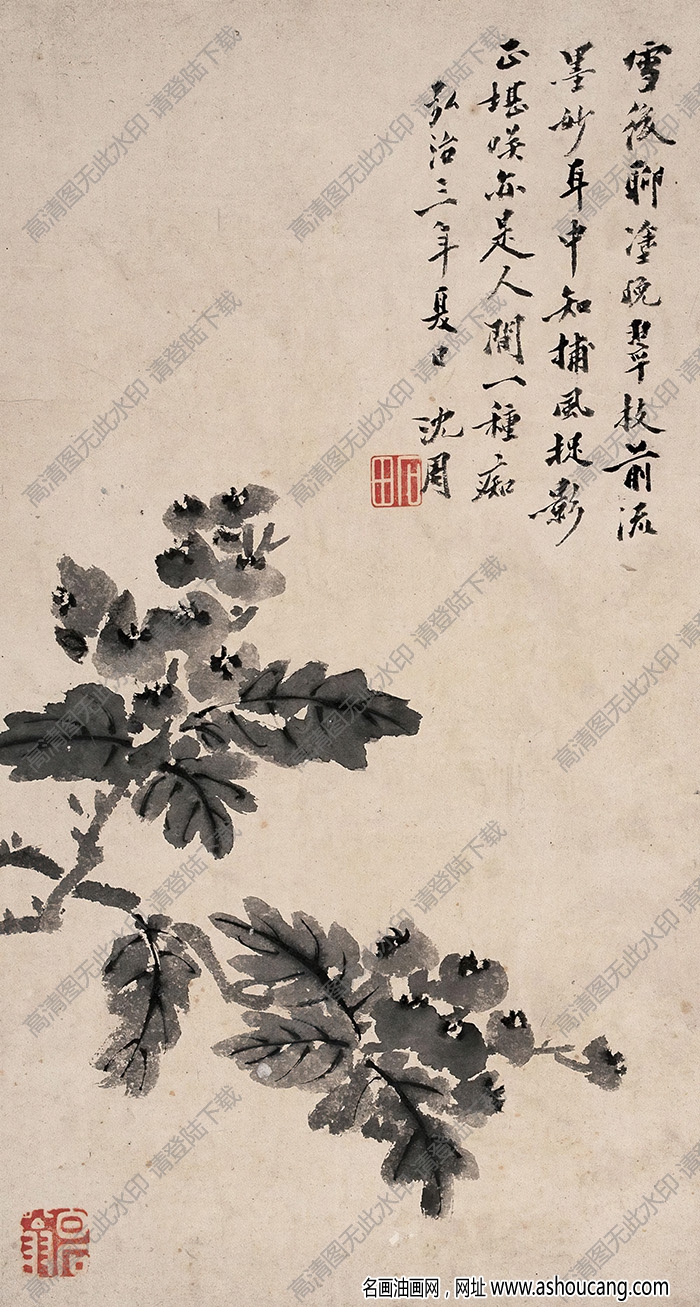 雪後聊塗晚翠枝前流
墨妙耳中知捕風捉影
正堪咲亦是人間一種痴
弘治三年夏日 沈周
石田
名画油画网，网址 www.ashoucang.com
高清图无此水印 请登陆下载